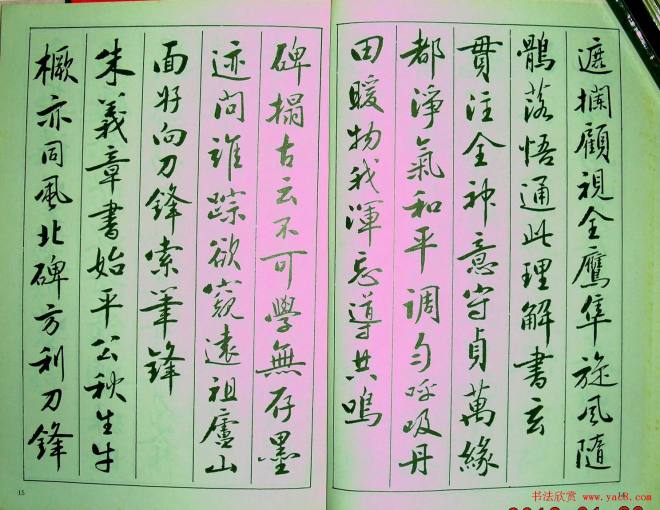 遮攔顧視全鷹隼旋風隨
鶻落悟通此理解書玄
貫注全神意守貞萬緣
都淨氣和平調勻呼吸丹
田暖物我渾忘導共鳴
碑搨古云不可學無存墨
迹問誰踪欲窺遠祖廬山
面好向刀鋒索筆鋒
朱義章書始平公秋生牛
橛亦同風北碑方利刀鋒
15
书法欣赏 www.yac8.com